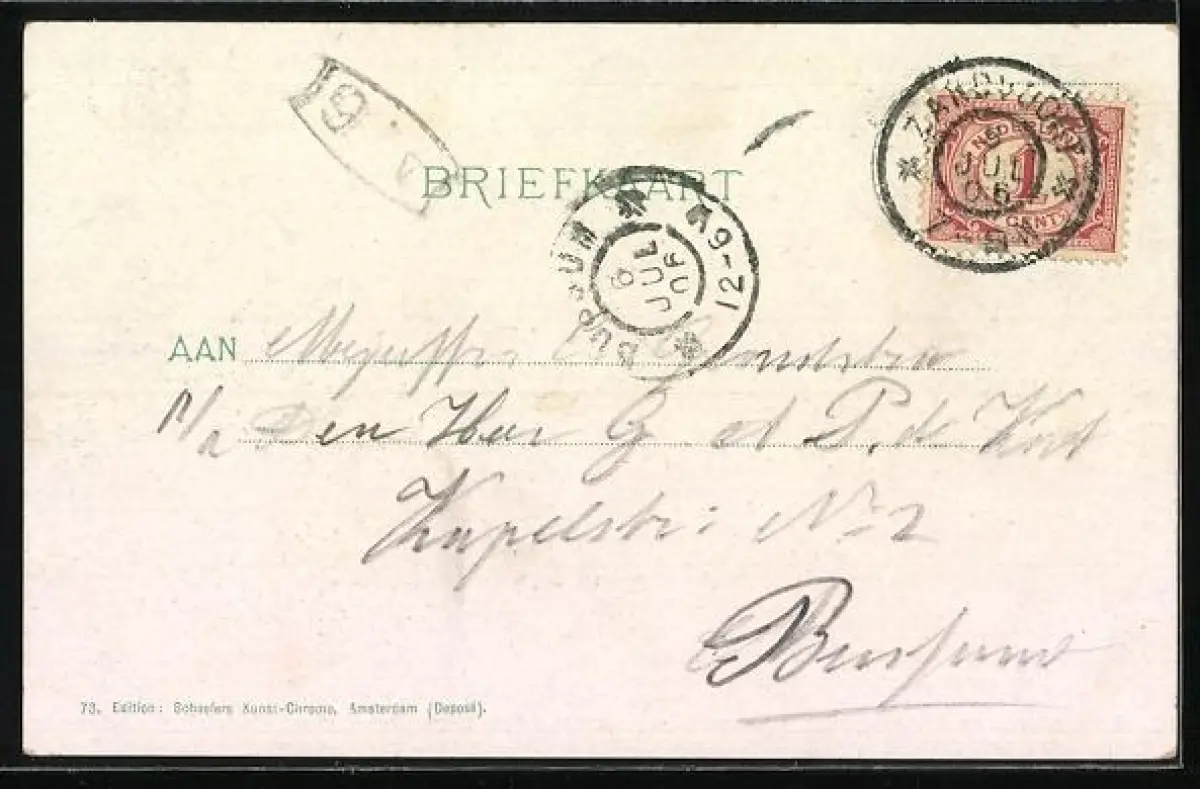 BRIEFKAART
ZANDVOORT
6
JUL
06
NED
1
CENT
BUSSUM
6
JUL
06
9-12V
AAN Mejuffr.
p/a Den Heer G. d P. de Kort
Kapelstr: No 2
Bussum
73. Edition: Schaefers Kunst-Chromo, Amsterdam (Deposé).